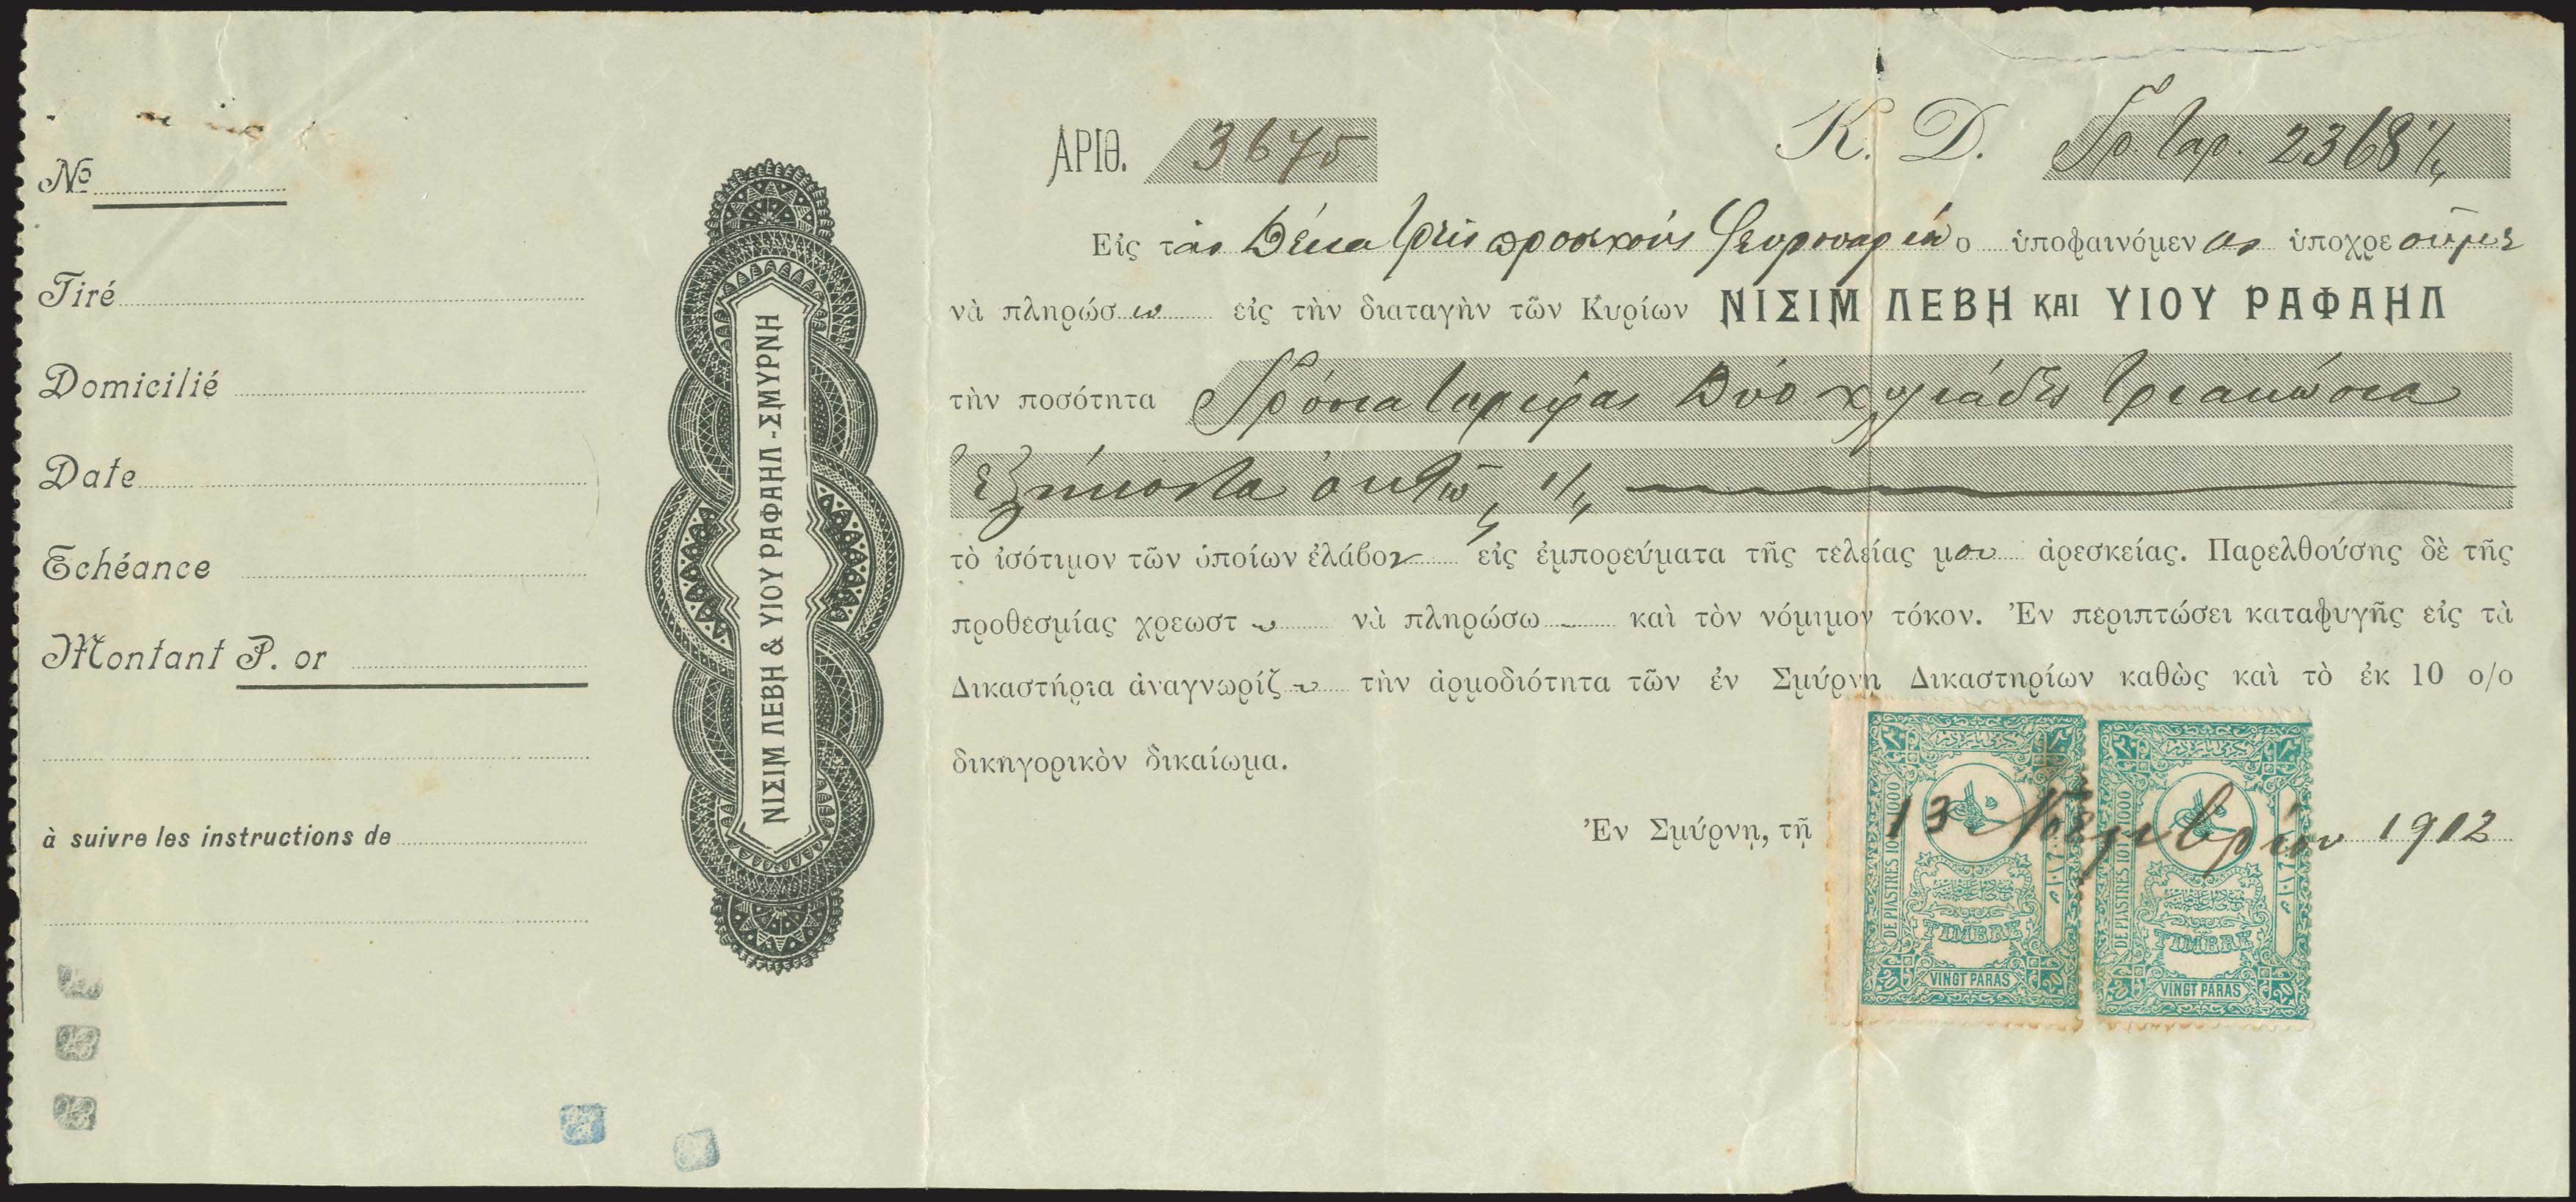 Nο
Tiré
Domicilié
Date
Echéance
Montant P. or
à suivre les instructions de
ΝΙΣΙΜ ΛΕΒΗ & ΥΙΟΥ ΡΑΦΑΗΛ - ΣΜΥΡΝΗ
ΑΡΙΘ. 3675 K. D. Γρ. ταρ. 2368 1/4
Εἰς τὰς δέκα τρεῖς προσεχοῦς Φευρουαρίου ο ὑποφαινόμενος ὑποχρεοῦμε
νὰ πληρώσω εἰς τὴν διαταγὴν τῶν Κυρίων ΝΙΣΙΜ ΛΕΒΗ ΚΑΙ ΥΙΟΥ ΡΑΦΑΗΛ
τὴν ποσότητα Γρόσια ταρίφας Δύο χιλιάδες τριακώσια
ἑξήκοντα ὀκτὼ, 1/4
τὸ ἰσότιμον τῶν ὁποίων ἐλάβον εἰς ἐμπορεύματα τῆς τελείας μου ἀρεσκείας. Παρελθούσης δὲ τῆς
προθεσμίας χρεωστῶ νὰ πληρώσω καὶ τὸν νόμιμον τόκον. Ἐν περιπτώσει καταφυγῆς εἰς τὰ
Δικαστήρια ἀναγνωρίζω τὴν ἁρμοδιότητα τῶν ἐν Σμύρνῃ Δικαστηρίων καθὼς καὶ τὸ ἐκ 10 ο/ο
δικηγορικὸν δικαίωμα.
Ἐν Σμύρνῃ, τῇ 13 Νοεμβρίου 1912
DE PIASTRES 101 À 1000
TIMBRE
VINGT PARAS
20 20
DE PIASTRES 101 À 1000
TIMBRE
VINGT PARAS
20 20